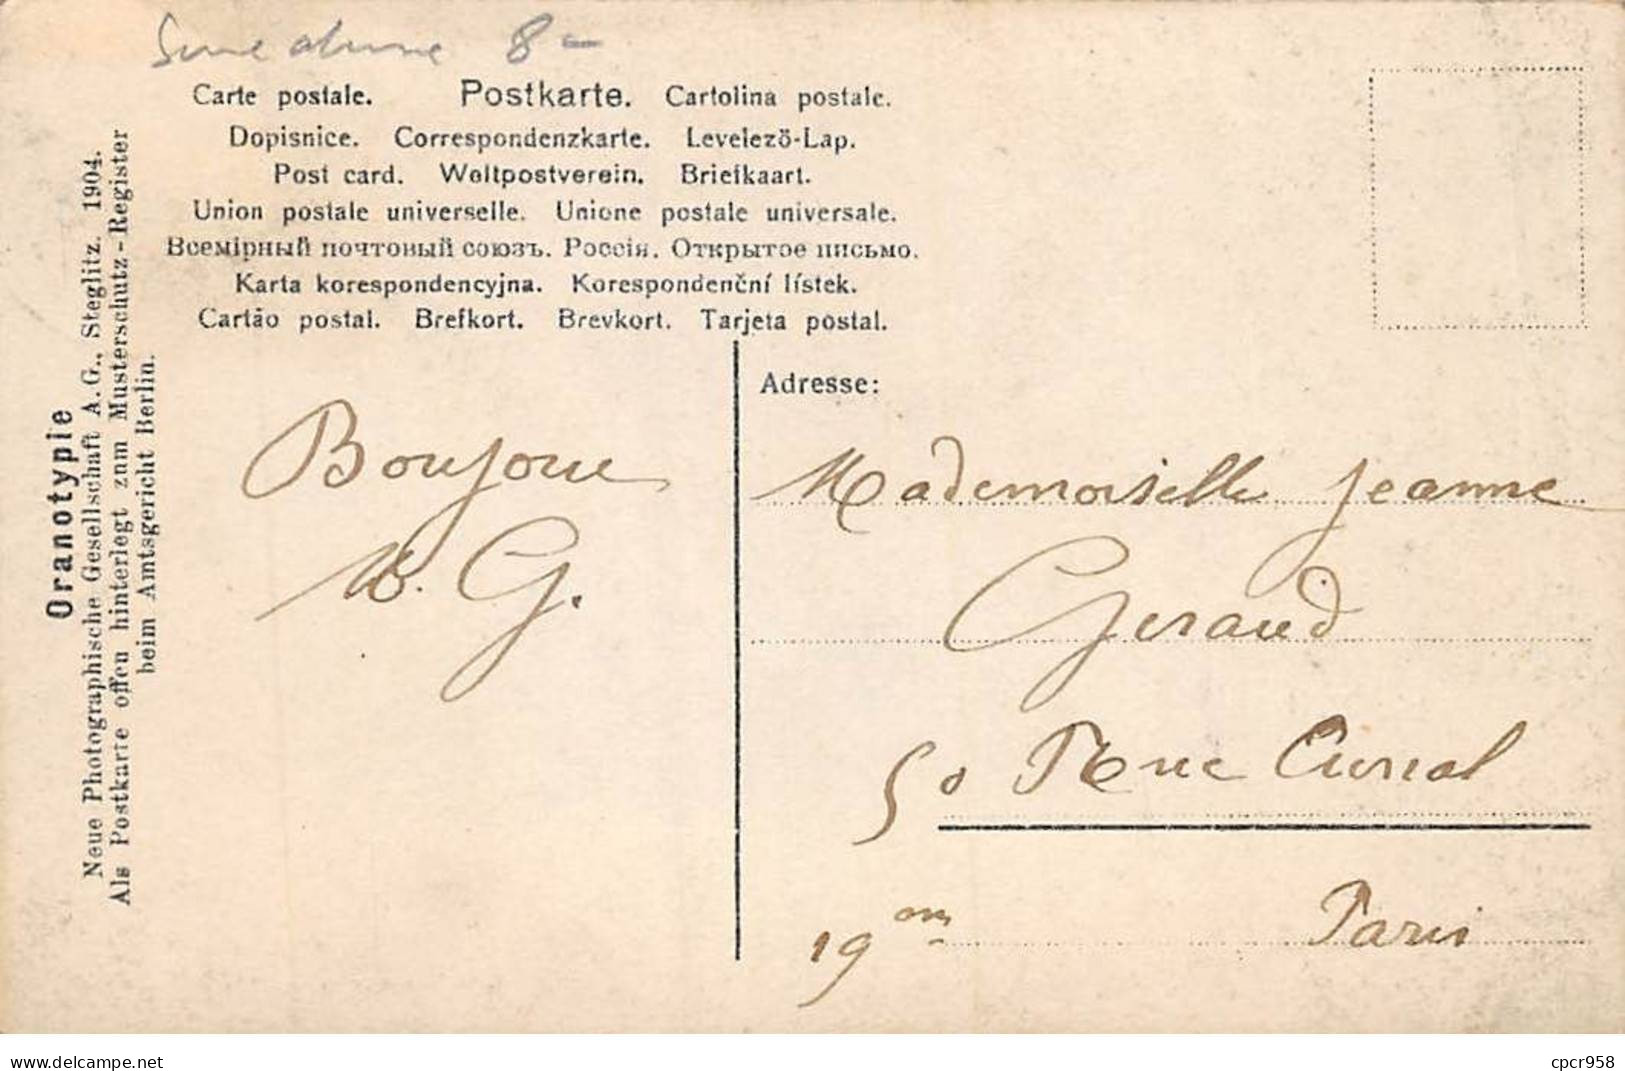 8 -
Carte postale. Postkarte. Cartolina postale.
Dopisnice. Correspondenzkarte. Levelező-Lap.
Post card. Weltpostverein. Briefkaart.
Union postale universelle. Unione postale universale.
Всемірный почтовый союзъ. Россія. Открытое письмо.
Karta korespondencyjna. Korespondenční lístek.
Cartão postal. Brefkort. Brevkort. Tarjeta postal.
Oranotypie
Neue Photographische Gesellschaft A.G., Steglitz. 1904.
Als Postkarte offen hinterlegt zum Musterschutz-Register
beim Amtsgericht Berlin.
Bonjour
G.
Adresse:
Mademoiselle Jeanne
Geraud
50 Rue Curial
19em Paris
delcampe.net
cpcr958